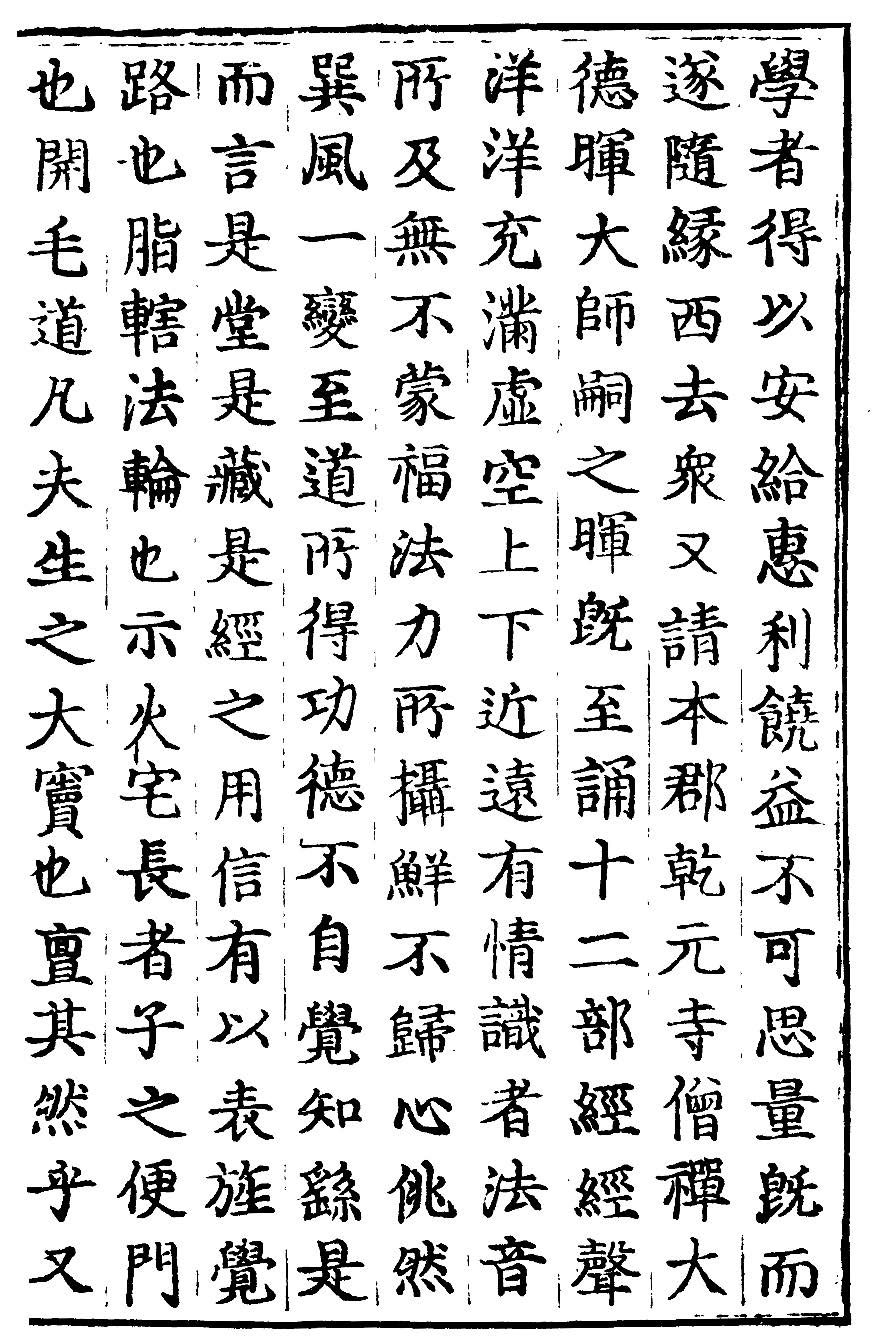 學者得以安給惠利饒益不可思量旣而
遂隨緣西去衆又請本郡乾元寺僧禪大
德暉大師嗣之暉旣至誦十二部經經聲
洋洋充滿虛空上下近遠有情識者法音
所及無不蒙福法力所攝鮮不歸心佻然
巽風一變至道所得功德不自覺知繇是
而言是堂是藏是經之用信有以表旌覺
路也脂轄法輪也示火宅長者子之便門
也開毛道凡夫生之大竇也亶其然乎又